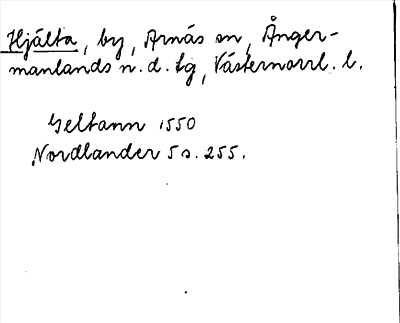 Hjälta, by, Arnäs sn, Ånger-
manlands n. d. tg, Västernorrl. l.
Geltann 1550
Nordlander 5 s. 255.